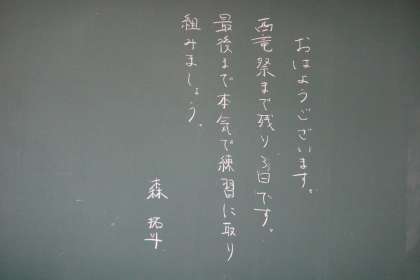 おはようございます。
西竜祭まで残り3日です。
最後まで本気で練習に取り
組みましょう。
森 拓斗